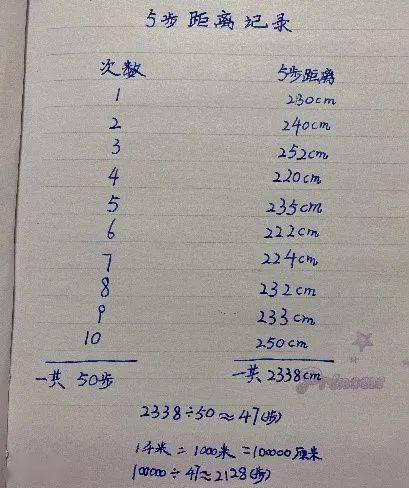 5步距离记录
次数 5步距离
1 230cm
2 240cm
3 252cm
4 220cm
5 235cm
6 222cm
7 224cm
8 232cm
9 233cm
10 250cm
一共 50步 一共 2338cm
Princess
2338÷50≈47(步)
1千米=1000米=100000厘米
100000÷47≈2128(步)